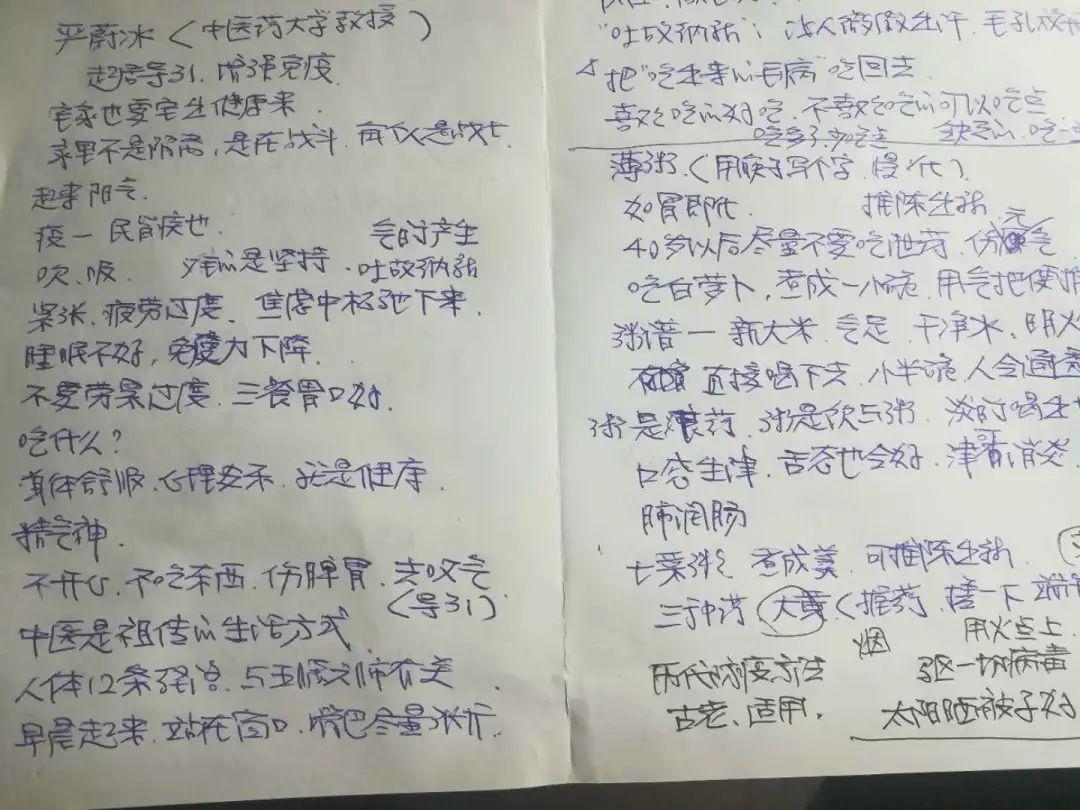 严蔚冰（中医药大学教授）
起居导引，增强免疫
宅家也要宅出健康来
家里不是隔离，是在战斗，每个人是战士
起来阳气
疫一民皆疫也 气的产生
吹、吸 难的是坚持、吐故纳新
紧张、疲劳过度、焦虑中松弛下来
睡眠不好，免疫力下降
不要劳累过度、三餐胃口好
吃什么？
身体舒服、心理安乐、就是健康
精气神
不开心、不吃东西、伤脾胃、去叹气
（导引）
中医是祖传的生活方式
人体12条经络、与五脏六腑有关
早晨起来、站在窗口、嘴巴尽量张开
"吐故纳新"；让人微微出汗、毛孔
把"吃出来的毛病"吃回去
喜欢吃的好吃、不喜欢吃的可以吃点
吃多了少吃点 缺 的、吃
薄粥、（用筷子写个字、慢 化）
如胃即化 推陈出新
40岁以后尽量不要吃泄药、伤元气
吃白萝卜、煮成一小碗、用气把便推
粥谱一 新大米、气足、干净水、阴火
直接喝下去、小半碗、人会通透
粥是良药、粥是饮与粥、淡的喝出
口舌生津、舌态也会好、津 消炎
肺润肠
七菜粥、煮成羹、可推陈出新
三种药 大黄（推药、捂一下
烟 用火点上
两代 疫方法 驱一切病毒
古老、适用。 太阳晒被子好